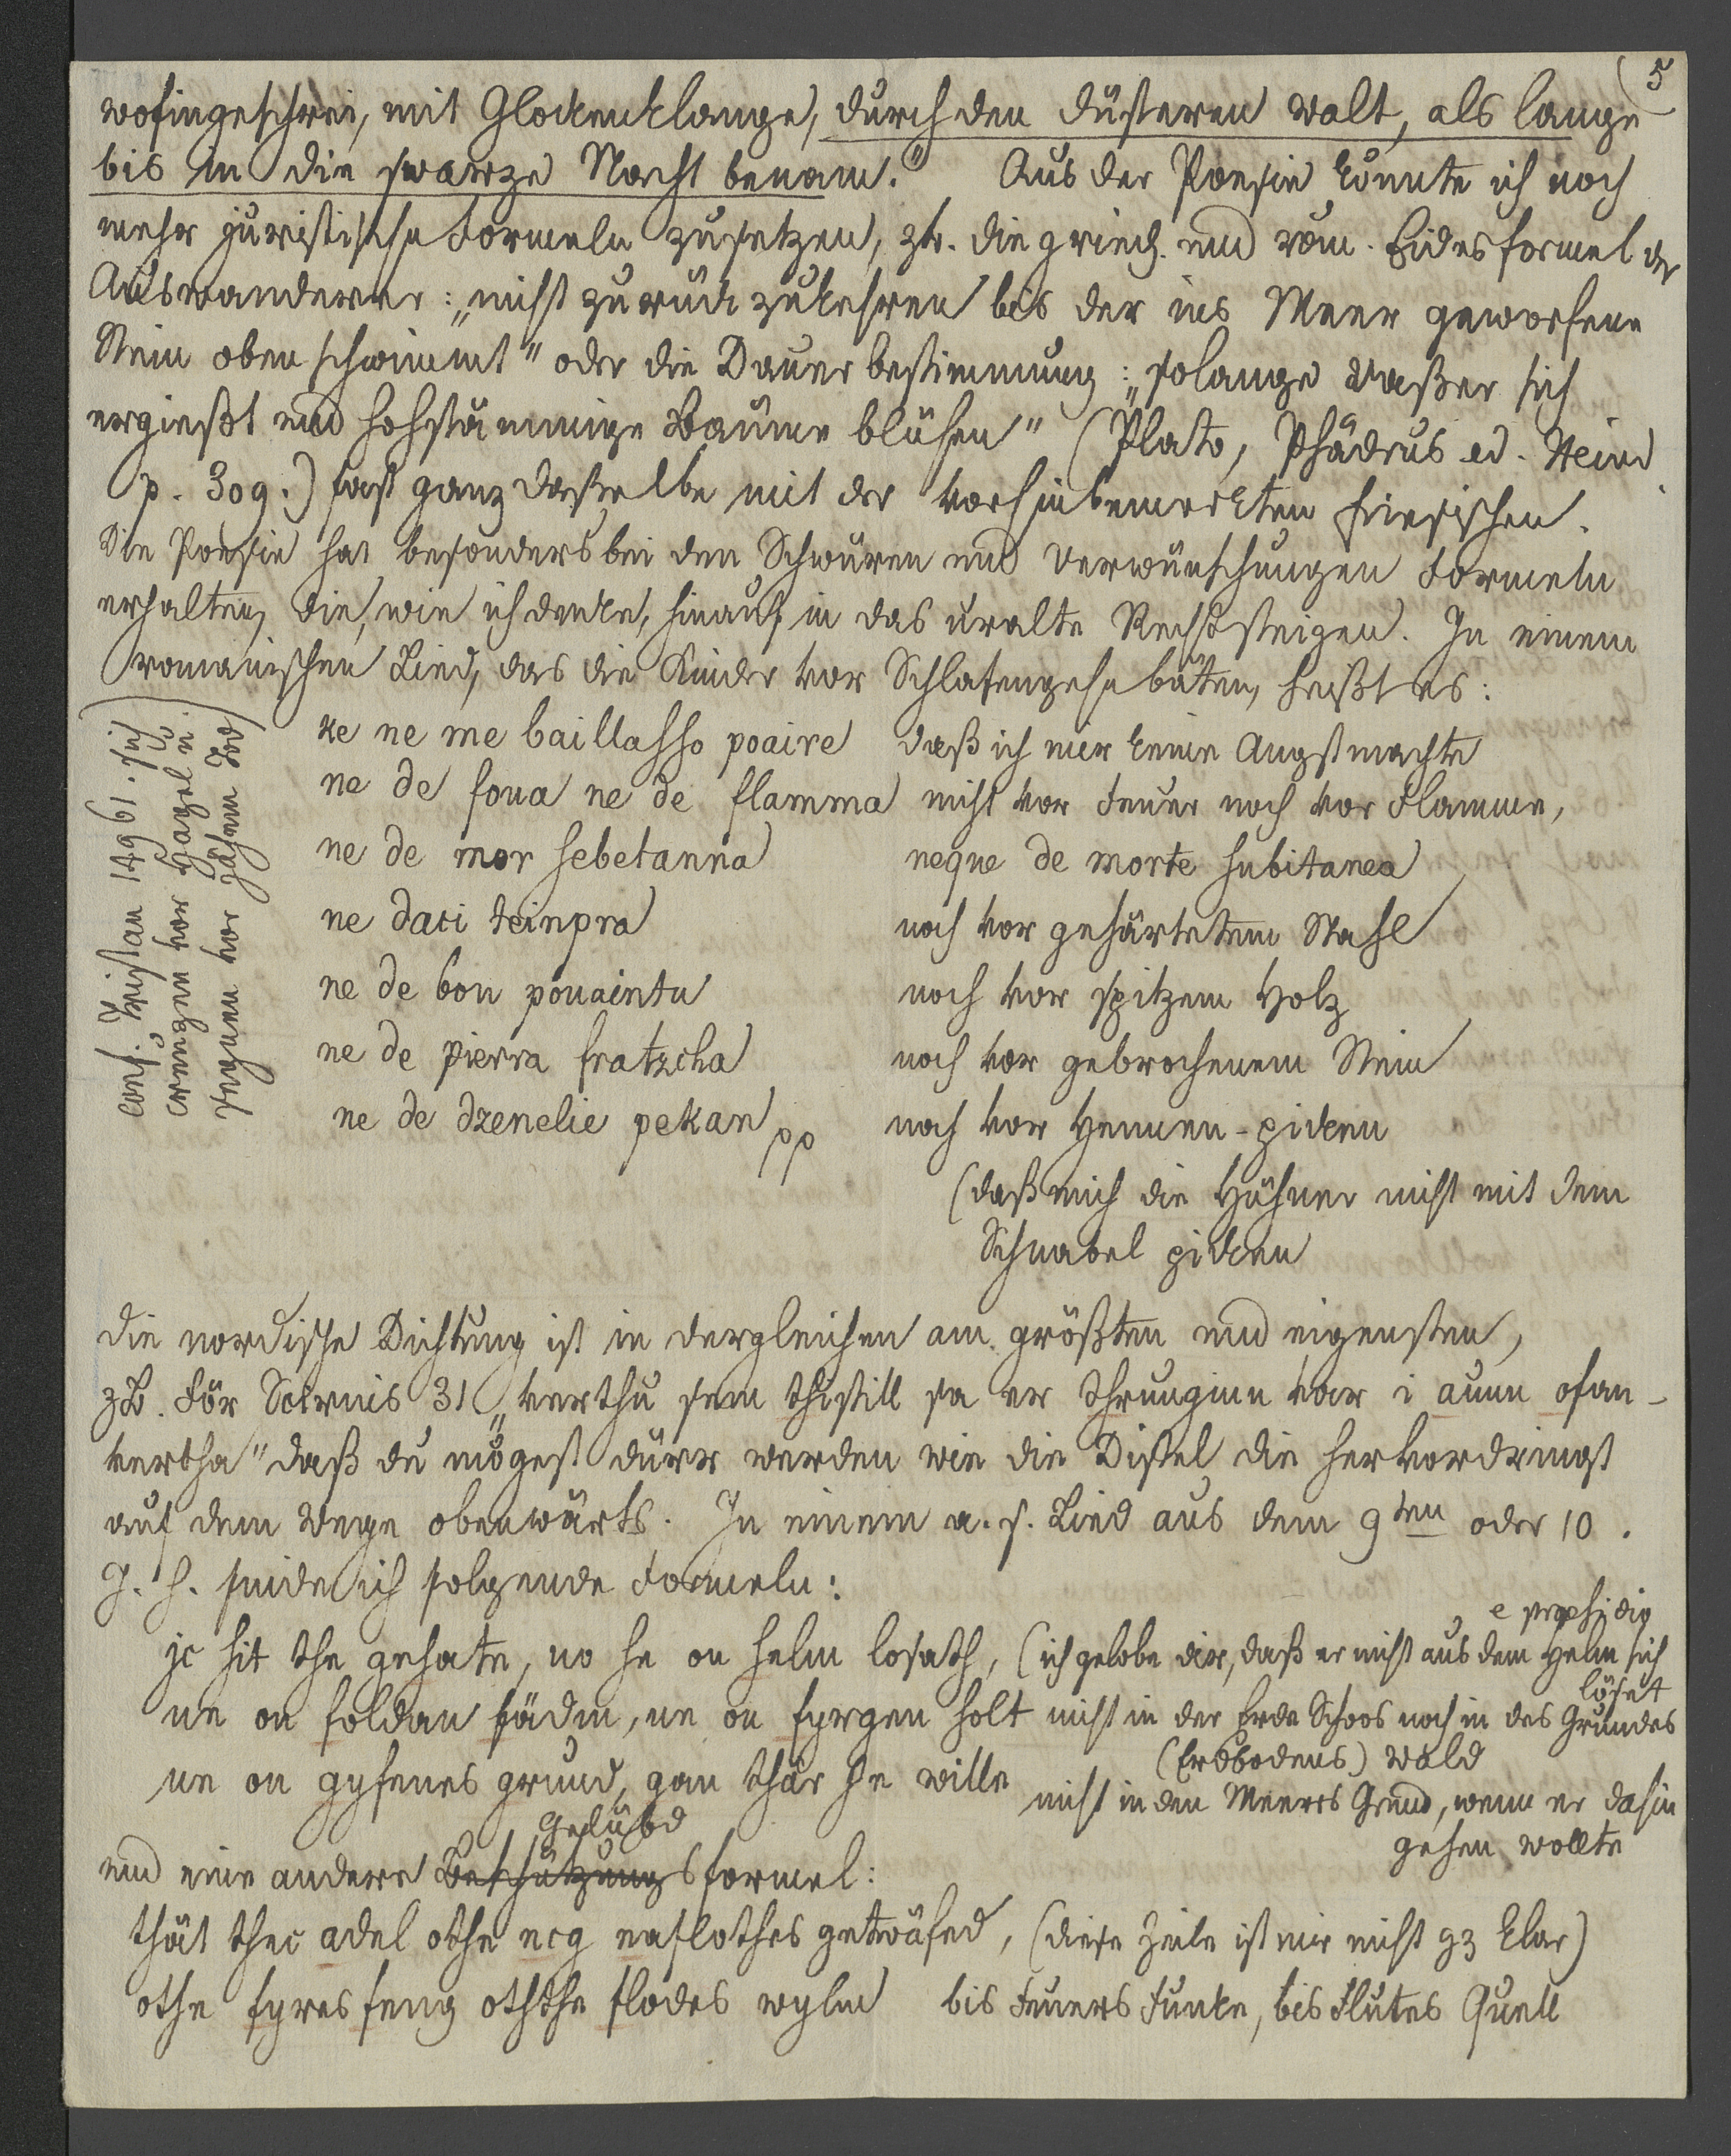 5
wofingeschrei, mit Glockenklange, durch den düsteren walt, als lange
bis in die swarze Nacht benam." Aus der Poesie könnte ich noch
mehr juristische Formeln zusetzen, zb. die griech. und röm. Eidesformel der
Auswanderer: „nicht zurück zukehren bis der ins Meer geworfene
Stein oben schwimmt" oder die Dauerbestimmung: „solange Waßer sich
ergießt und hohstämmige Bäume blühen" (Plato, Phädrus ed. Heind
p. 309.) fast ganz daßelbe mit der vorhin bemerkten friesischen.
Die Poesie hat besonders bei den Schwüren und Verwünschungen Formeln
erhalten, die, wie ich denke, hinauf in das uralte Recht steigen. In einem
romanischen Lied, das die Kinder vor Schlafengehn bäten, heißt es:
ke ne me baillasso poaire daß ich mir keine Angst machte
ne de foua ne de flamma nicht vor Feuer noch vor Flamme,
ne de mor sebetanna neque de morte subitanea
ne daci teinpra noch vor gehärtetem Stahl
ne de bou pouaintu noch vor spitzem Holz
ne de pierra fratzcha noch vor gebrochenem Stein
ne de dzenelie pekan pp noch vor Hennen-picken
(daß mich die Hühner nicht mit dem
Schnabel picken
conf. Tristan 14961. sich
creuzen vor Hagel u.
segnen vor jähem Tod)
die nordische Dichtung ist in dergleichen am größten und eigensten,
zB. För Scirnis 31 „verthu sem thistill sa er thrunginn var i aunn ofan-
vertha" daß du mögest dürr werden wie die Distel die hervordringt
auf dem Wege obenwärts. In einem a. s. Lied aus dem 9ten oder 10.
J. H. finde ich folgende Formeln:
e præsidio
ic hit the gehate, no he on helm losath, (ich gelobe dir, daß er nicht aus dem Helm sich
löset
ne on foldan fädm, ne on fyrgen holt nicht in der Erde Schoos noch in des Grundes
(Erdbodens) Wald
ne on gyfenes grund, gan thär he wille nicht in den Meeres Grund, wenn er dahin
gehen wollte
Gelübd
und eine andere Beschützungsformel:
thät thec adel othe ecg eafothes getwäfed, (diese Zeile ist mir nicht gz klar)
othe fyres feng oththe flodes wylm bis Feuers Funke, bis Flutes Quell